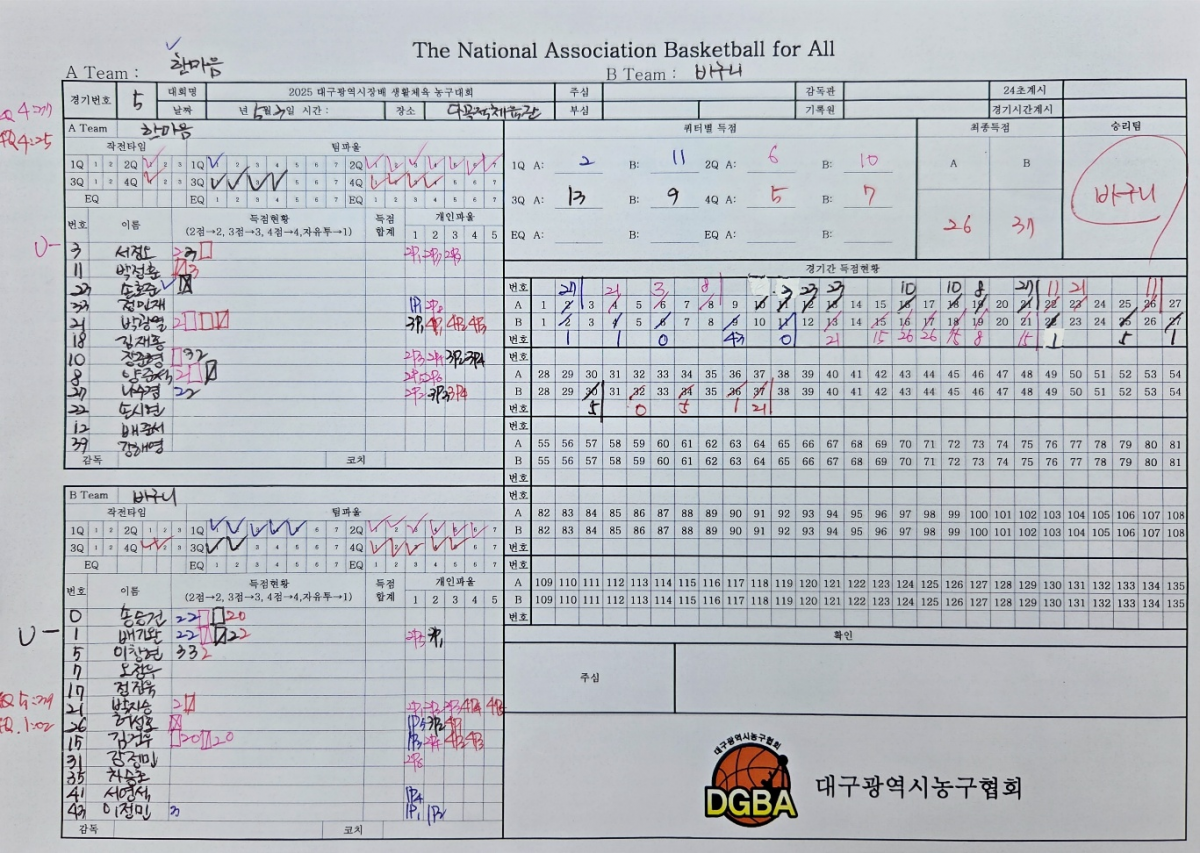 The National Association Basketball for All
A Team : 한마음
B Team : 바구니
경기번호 5 대회명 2025 대구광역시장배 생활체육 농구대회 주심 감독관 24초계시
날짜 년 5월 3일 시간 : 장소 부심 기록원 경기시간계시
A Team 한마음
작전타임 팀파울
1Q 1 2 2Q 1 2 3 1Q 1 2 3 4 5 6 7 2Q 1 2 3 4 5 6 7
3Q 1 2 4Q 1 2 3 3Q 1 2 3 4 5 6 7 4Q 1 2 3 4 5 6 7
EQ EQ 1 2 3 4 5 6 7 EQ 1 2 3 4 5 6 7
번호 이름 득점현황 (2점→2, 3점→3, 4점→4,자유투→1) 득점합계 개인파울 1 2 3 4 5
3
11 박정훈
23
33 정민재
21 박광열
18 김재홍
10
8
27 나수경 22
22 손시현
12 배준서
39 김해영
감독 코치
쿼터별 득점 최종득점 승리팀
1Q A: 2 B: 11 2Q A: 6 B: 10
3Q A: 13 B: 9 4Q A: 5 B: 7
EQ A: B: EQ A: B:
A B
26 37
바구니
경기간 득점현황
번호 27 21 3 8 3 23 23 10 10 8 27 11 21 11
A 1 2 3 4 5 6 7 8 9 10 11 12 13 14 15 16 17 18 19 20 21 22 23 24 25 26 27
B 1 2 3 4 5 6 7 8 9 10 11 12 13 14 15 16 17 18 19 20 21 22 23 24 25 26 27
번호 1 1 0 43 0 21 15 26 26 15 8 15 1 5 1
번호
A 28 29 30 31 32 33 34 35 36 37 38 39 40 41 42 43 44 45 46 47 48 49 50 51 52 53 54
B 28 29 30 31 32 33 34 35 36 37 38 39 40 41 42 43 44 45 46 47 48 49 50 51 52 53 54
번호 5 0 5 1 21
번호
A 55 56 57 58 59 60 61 62 63 64 65 66 67 68 69 70 71 72 73 74 75 76 77 78 79 80 81
B 55 56 57 58 59 60 61 62 63 64 65 66 67 68 69 70 71 72 73 74 75 76 77 78 79 80 81
번호
번호
A 82 83 84 85 86 87 88 89 90 91 92 93 94 95 96 97 98 99 100 101 102 103 104 105 106 107 108
B 82 83 84 85 86 87 88 89 90 91 92 93 94 95 96 97 98 99 100 101 102 103 104 105 106 107 108
번호
번호
A 109 110 111 112 113 114 115 116 117 118 119 120 121 122 123 124 125 126 127 128 129 130 131 132 133 134 135
B 109 110 111 112 113 114 115 116 117 118 119 120 121 122 123 124 125 126 127 128 129 130 131 132 133 134 135
번호
확인
주심
B Team 바구니
작전타임 팀파울
1Q 1 2 2Q 1 2 3 1Q 1 2 3 4 5 6 7 2Q 1 2 3 4 5 6 7
3Q 1 2 4Q 1 2 3 3Q 1 2 3 4 5 6 7 4Q 1 2 3 4 5 6 7
EQ EQ 1 2 3 4 5 6 7 EQ 1 2 3 4 5 6 7
번호 이름 득점현황 (2점→2, 3점→3, 4점→4,자유투→1) 득점합계 개인파울 1 2 3 4 5
0 손승건
1 배기완
5 이창현 332
7 오장우
17 정진욱
21 박지승
26 허성호
15 김건우
31 김정민
35 차승호
41 서영석
43 이정민 3
감독 코치
대구광역시농구협회
DGBA
대구광역시농구협회